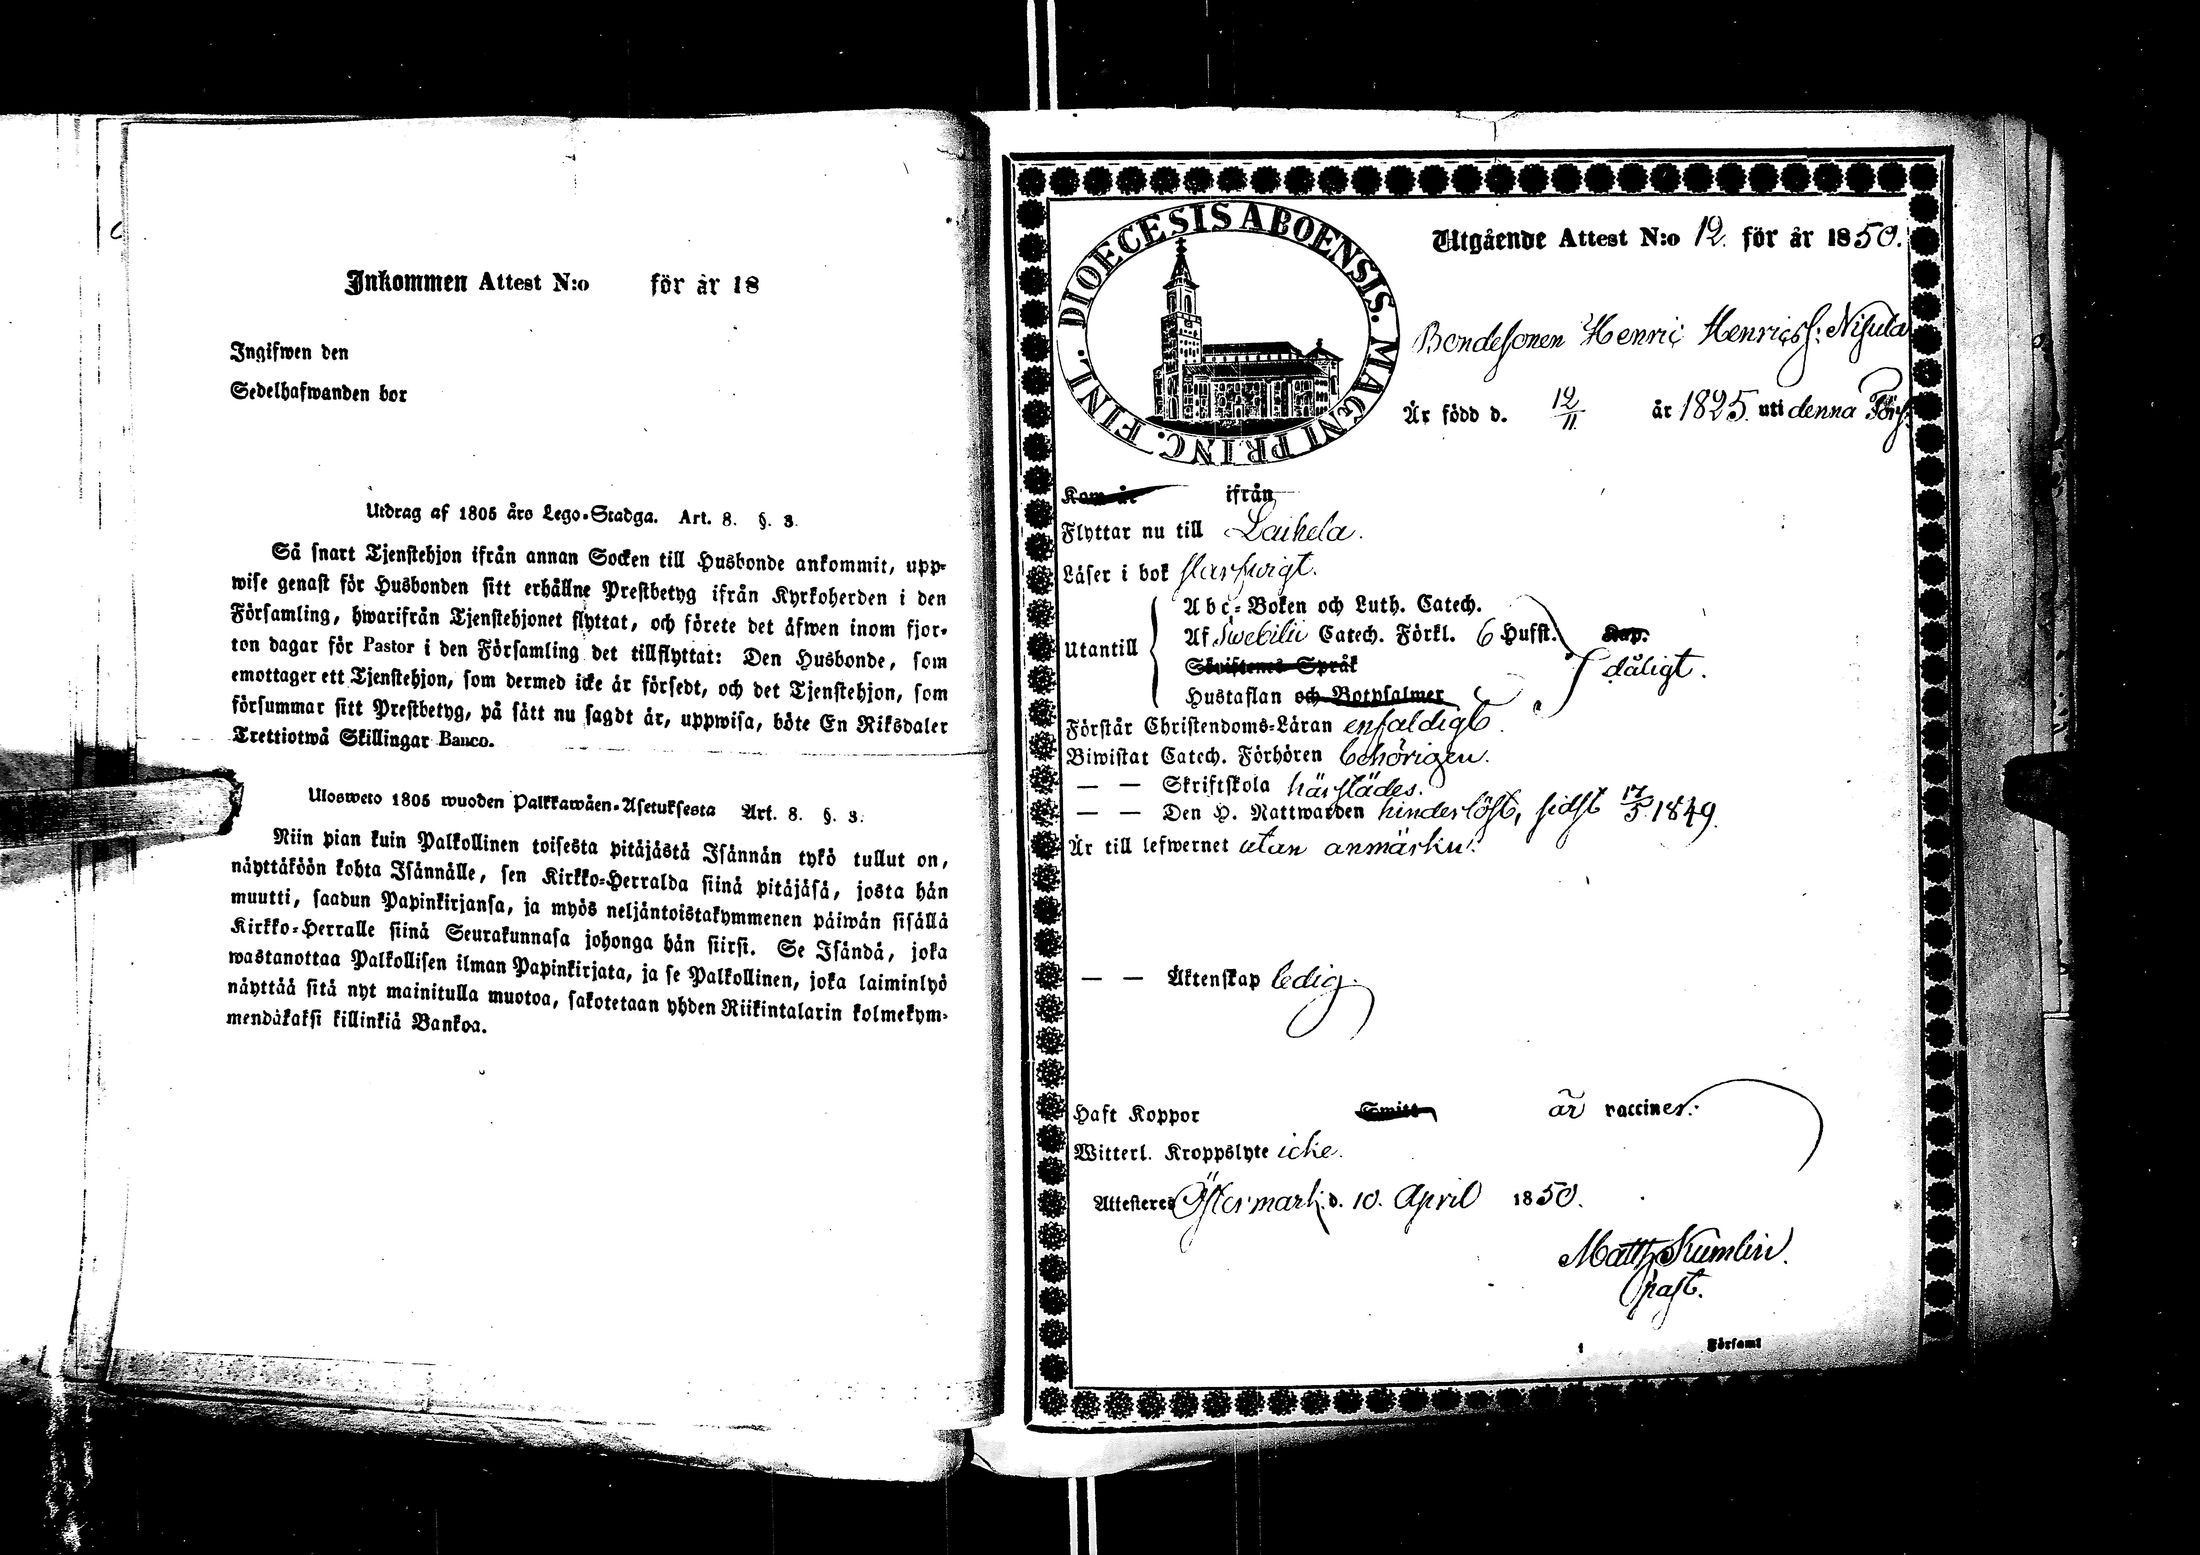 Inkommen Attest N:o för år 18
Ingifwen den
Sedelhafwanden bor
Utdrag af 1805 års Lego-Stadga. Art. 8. §. 3.
Så snart Tjenstehjon ifrån annan Socken till Husbonde ankommit, upp-
wise genast för Husbonden sitt erhållne Prestbetyg ifrån Kyrkoherden i den
Församling, hwarifrån Tjenstehjonet flyttat, och förete det äfwen inom fjor-
ton dagar för Pastor i den Församling det tillflyttat: Den Husbonde, som
emottager ett Tjenstehjon, som dermed icke är försedt, och det Tjenstehjon, som
försummar sitt Prestbetyg, på sätt nu sagdt är, uppwisa, böte En Riksdaler
Trettiotwå Skillingar Banco.
Ulosweto 1805 wuoden Palkkawäen-Asetuksesta Art. 8. §. 3.
Niin pian kuin Palkollinen toisesta pitäjästä Isännän tykö tullut on,
näyttäköön kohta Isännälle, sen Kirkko-Herralda siinä pitäjäsä, josta hän
muutti, saadun Papinkirjansa, ja myös neljäntoistakymmenen päiwän sisällä
Kirkko-Herralle siinä Seurakunnasa johonga hän siirsi. Se Isändä, joka
wastanottaa Palkollisen ilman Papinkirjata, ja se Palkollinen, joka laiminlyö
näyttää sitä nyt mainitulla muotoa, sakotetaan yhden Riikintalarin kolmekym-
mendäkaksi killinkiä Bankoa.
DIOECESIS ABOENSIS. MAGNI PRINC. FINL.
Utgående Attest N:o 12. för år 1850.
Bondesonen Henric Henricss: Nisula
Är född d. 12/11 år 1825. uti denna Förs:
Kom år ifrån
Flyttar nu till Laihela.
Läser i bok slarfwigt.
Abc-Boken och Luth. Catech.
Utantill Af Swebilii Catech. Förkl. 6 Hufst. Kap.
Skriftenes Språk dåligt.
Hustaflan och Botpsalmer
Förstår Christendoms-Läran enfaldigt.
Biwistat Catech. Förhören behörigen.
— — Skriftskola härstädes.
— — Den H. Nattwarden hinderlöst, sidst 17/5 1849.
Är till lefwernet utan anmärkn:
— — Äktenskap ledig.
Haft Koppor Smitt är vacciner:
Witterl. Kroppslyte icke.
Attesteres Östermark d. 10. April 1850.
Matth Kumlin.
past.
i Församl